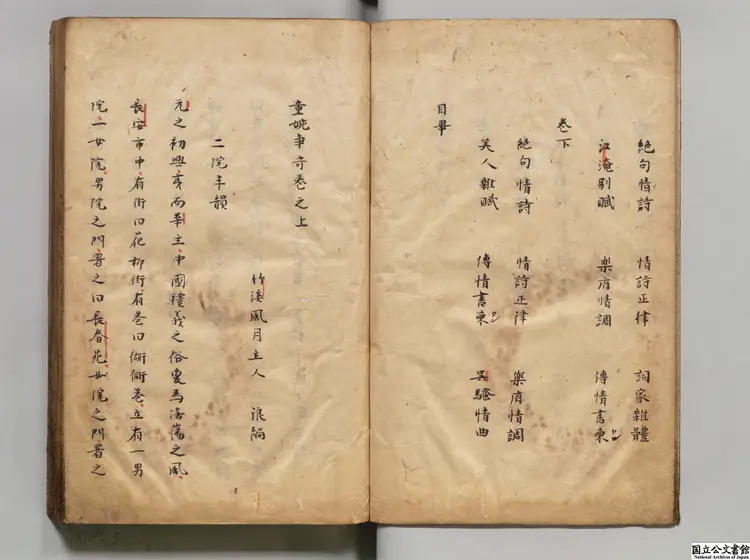 絶句情詩 情詩正律 詞家雜體
江淹別賦 樂府情調 傳情書柬上
卷下
絶句情詩 情詩正律 樂府情調
美人雜賦 傳情書柬下 吳騷情曲
目畢
童婉争奇卷之上
竹溪風月主人 浪編
二院争韻
元之初興夷而華主中國禮義之俗變爲滛蕩之風
長安市中有街曰花柳街有巷曰衚衕巷立有一男
院一女院男院之門署之曰長春苑女院之門署之
国立公文書館
National Archives of Japan